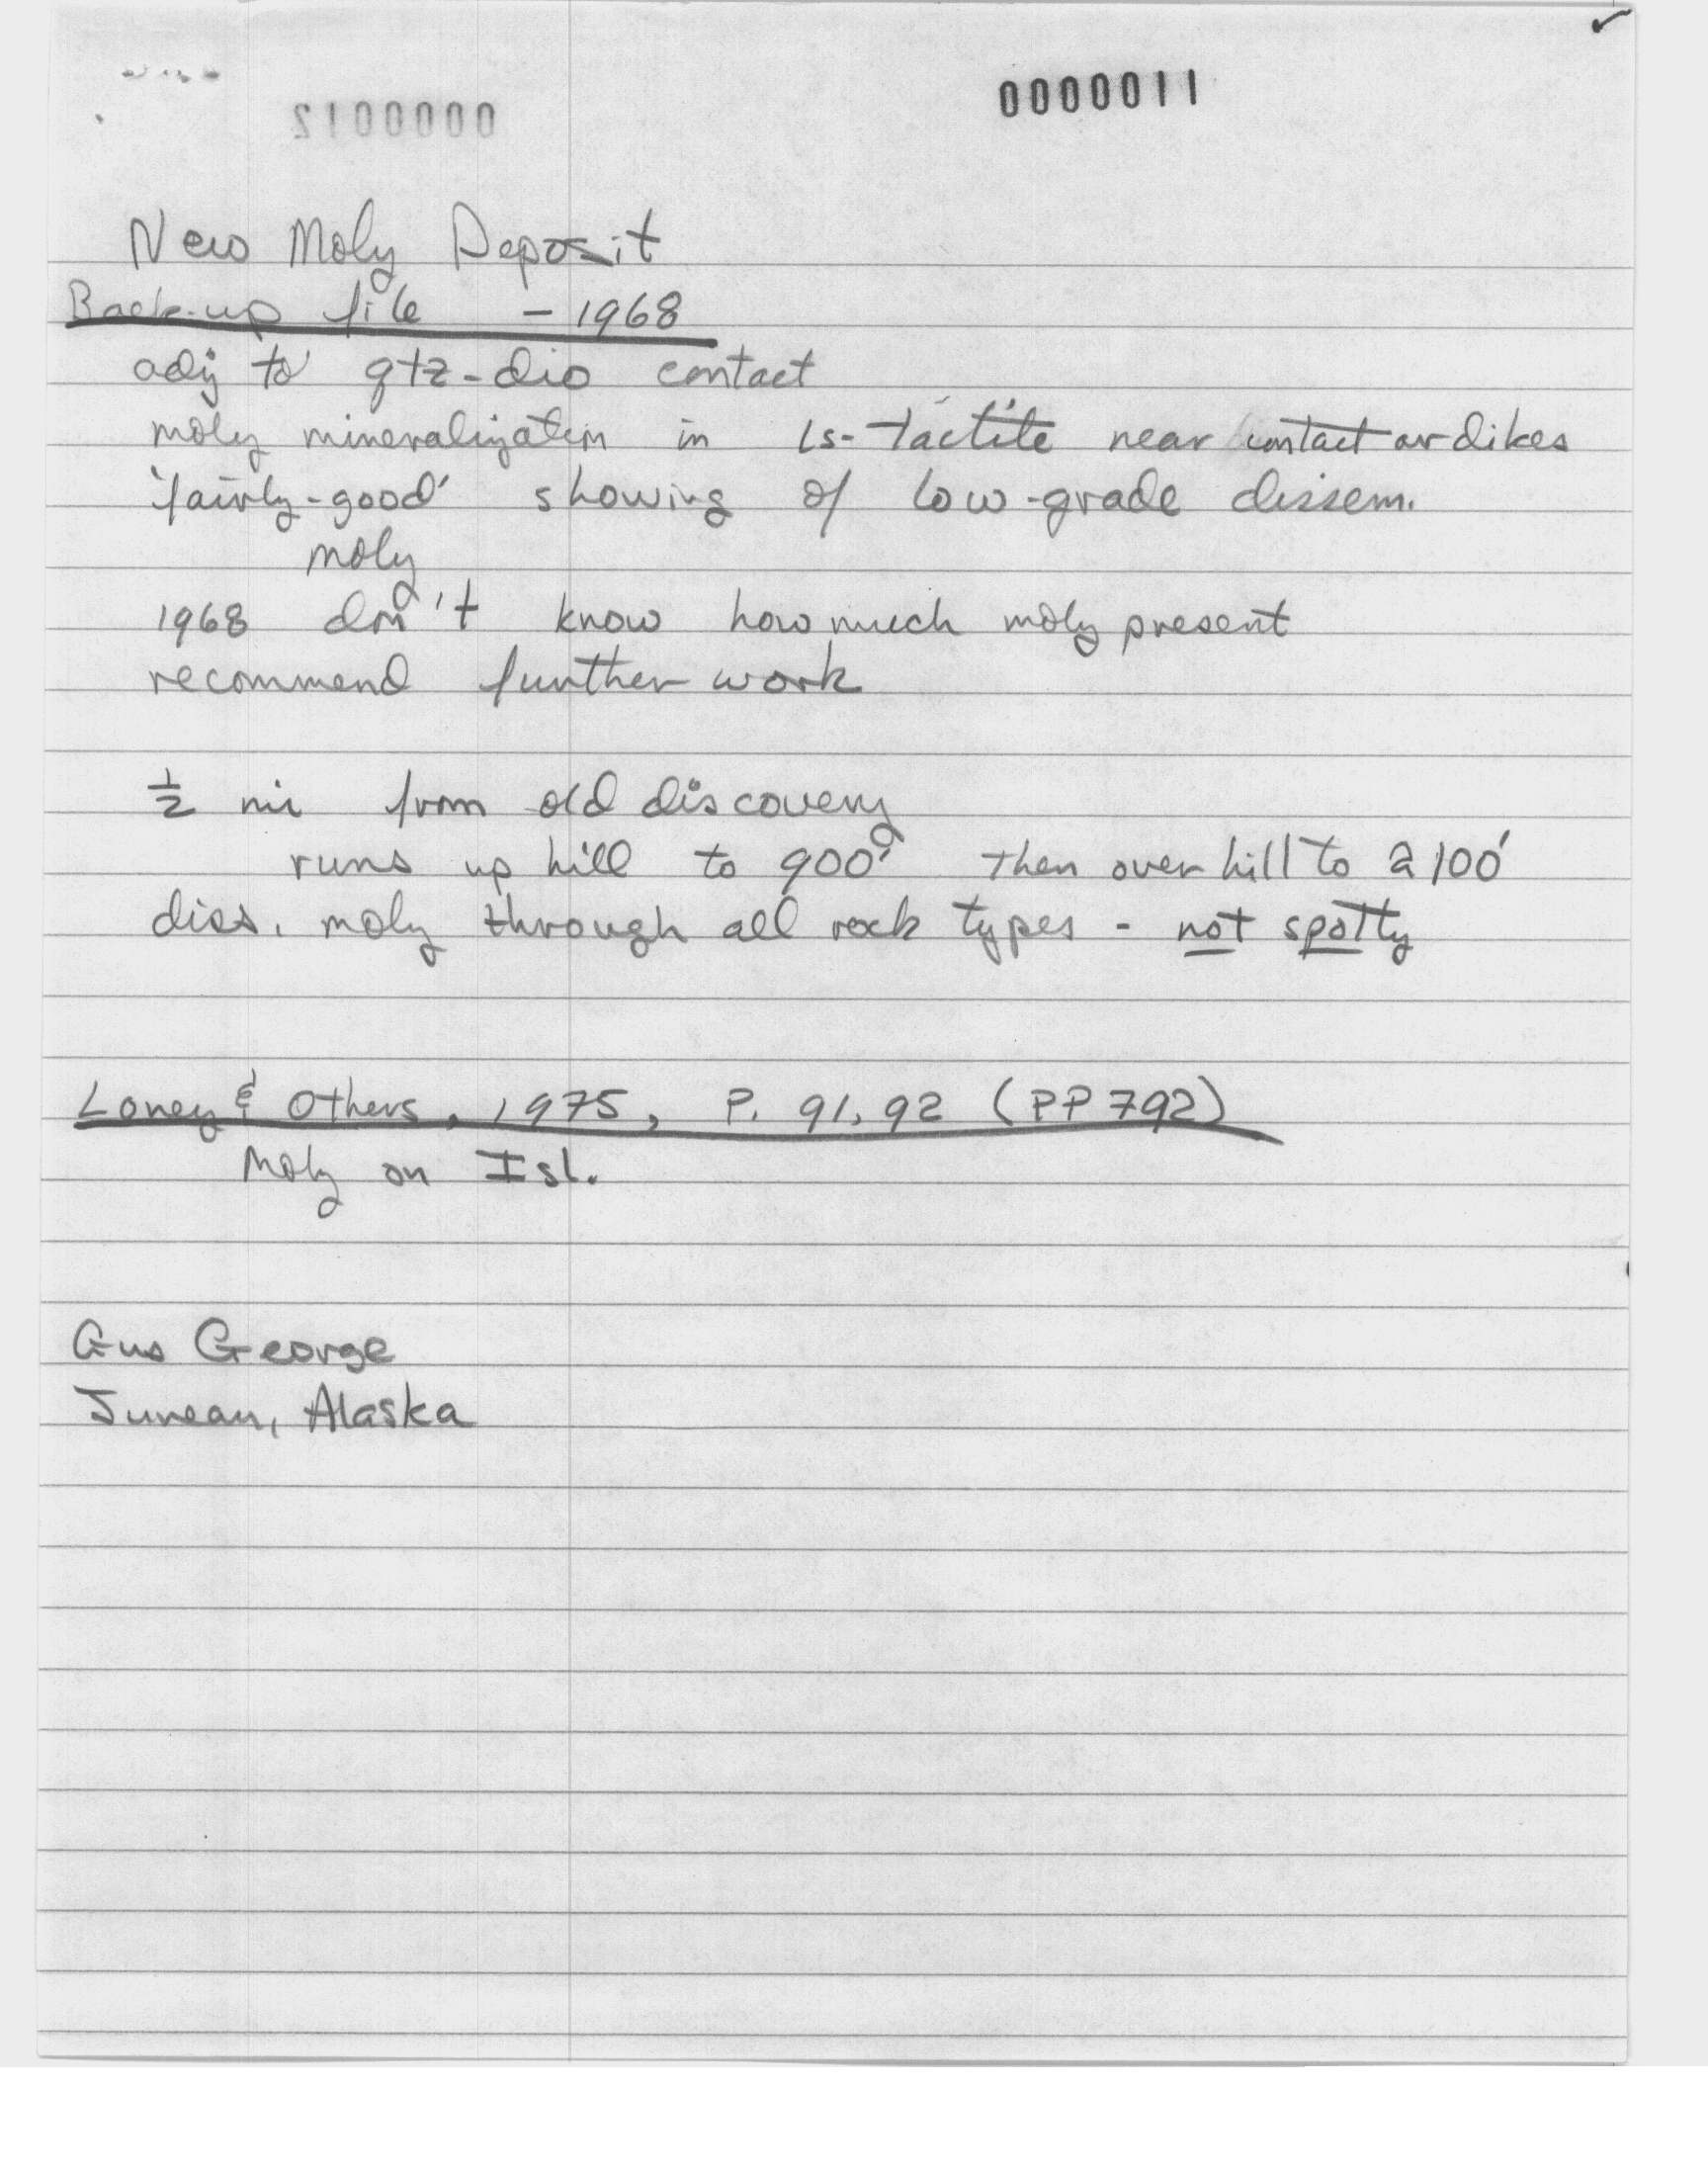 0000011
0000012
New Moly Deposit
Back-up file - 1968
adj to qtz-dio contact
moly mineralization in ls-tactite near contact or dikes
'fairly-good' showing of low-grade dissem.
moly
1968 don't know how much moly present
recommend further work
½ mi from old discovery
runs up hill to 900' then over hill to 2100'
diss. moly through all rock types - not spotty
Loney & Others, 1975, P. 91, 92 (PP 792)
Moly on Isl.
Gus George
Juneau, Alaska